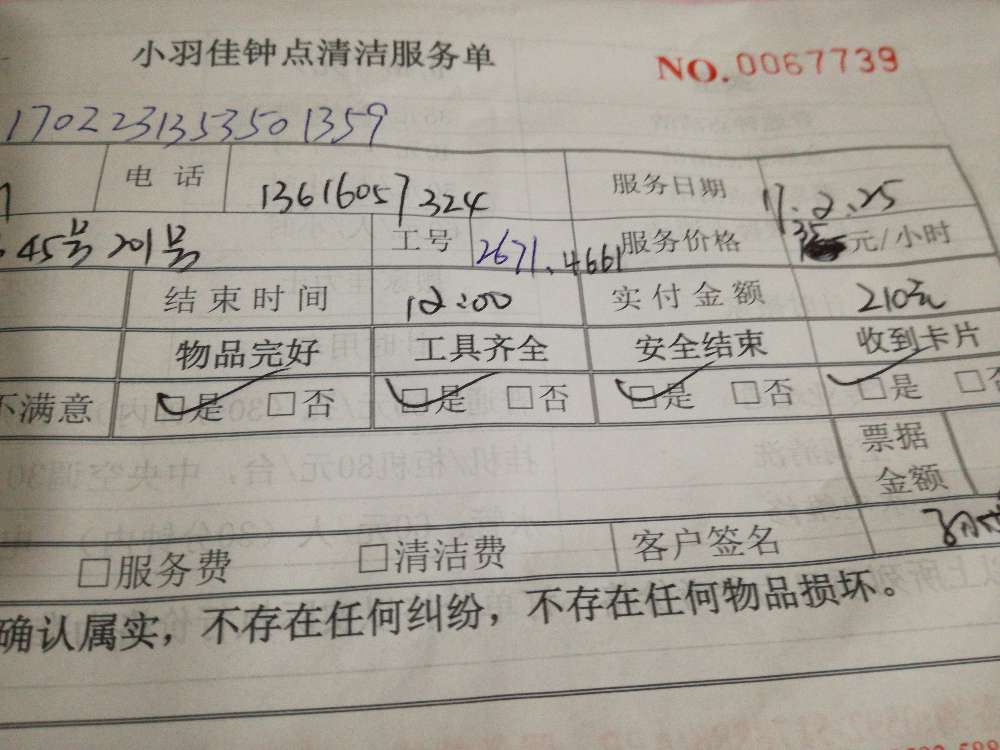 小羽佳钟点清洁服务单 NO.0067739
1702231353501359
电话 13616057324 服务日期 17.2.25
45号201号 工号 2671.4661 服务价格 35元/小时
结束时间 12:00 实付金额 210元
物品完好 工具齐全 安全结束 收到卡片
不满意 □是 □否 □是 □否 □是 □否 □是 □否
票据
金额
□服务费 □清洁费 客户签名
确认属实，不存在任何纠纷，不存在任何物品损坏。